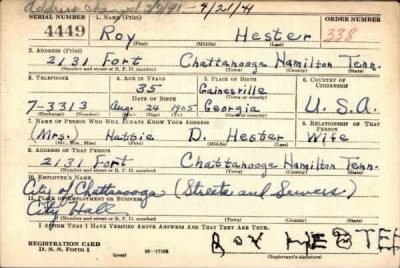 Address changed 3/5/41 - 4/21/41
SERIAL NUMBER 1. NAME (Print) ORDER NUMBER
4449 Roy Hester 338
(First) (Middle) (Last)
2. ADDRESS (Print)
2131 Fort Chattanooga Hamilton Tenn.
(Number and street or R. F. D. number) (Town) (County) (State)
3. TELEPHONE 4. AGE IN YEARS 5. PLACE OF BIRTH 6. COUNTRY OF CITIZENSHIP
35 Gainesville
DATE OF BIRTH
7-3313 Aug. 24 1905 Georgia U.S.A.
(Exchange) (Number) (Mo.) (Day) (Yr.) (State or country)
7. NAME OF PERSON WHO WILL ALWAYS KNOW YOUR ADDRESS 8. RELATIONSHIP OF THAT PERSON
(Mrs.) Hattie D. Hester Wife
(Mr., Mrs., Miss) (First) (Middle) (Last)
9. ADDRESS OF THAT PERSON
2131 Fort Chattanooga Hamilton Tenn.
(Number and street or R. F. D. number) (Town) (County) (State)
10. EMPLOYER'S NAME
City of Chattanooga (Streets and Sewers)
11. PLACE OF EMPLOYMENT OR BUSINESS
City Hall
(Number and street or R. F. D. number) (Town) (County) (State)
I AFFIRM THAT I HAVE VERIFIED ABOVE ANSWERS AND THAT THEY ARE TRUE.
REGISTRATION CARD
D. S. S. Form 1 16-17105 ROY HESTER
(Registrant's signature)